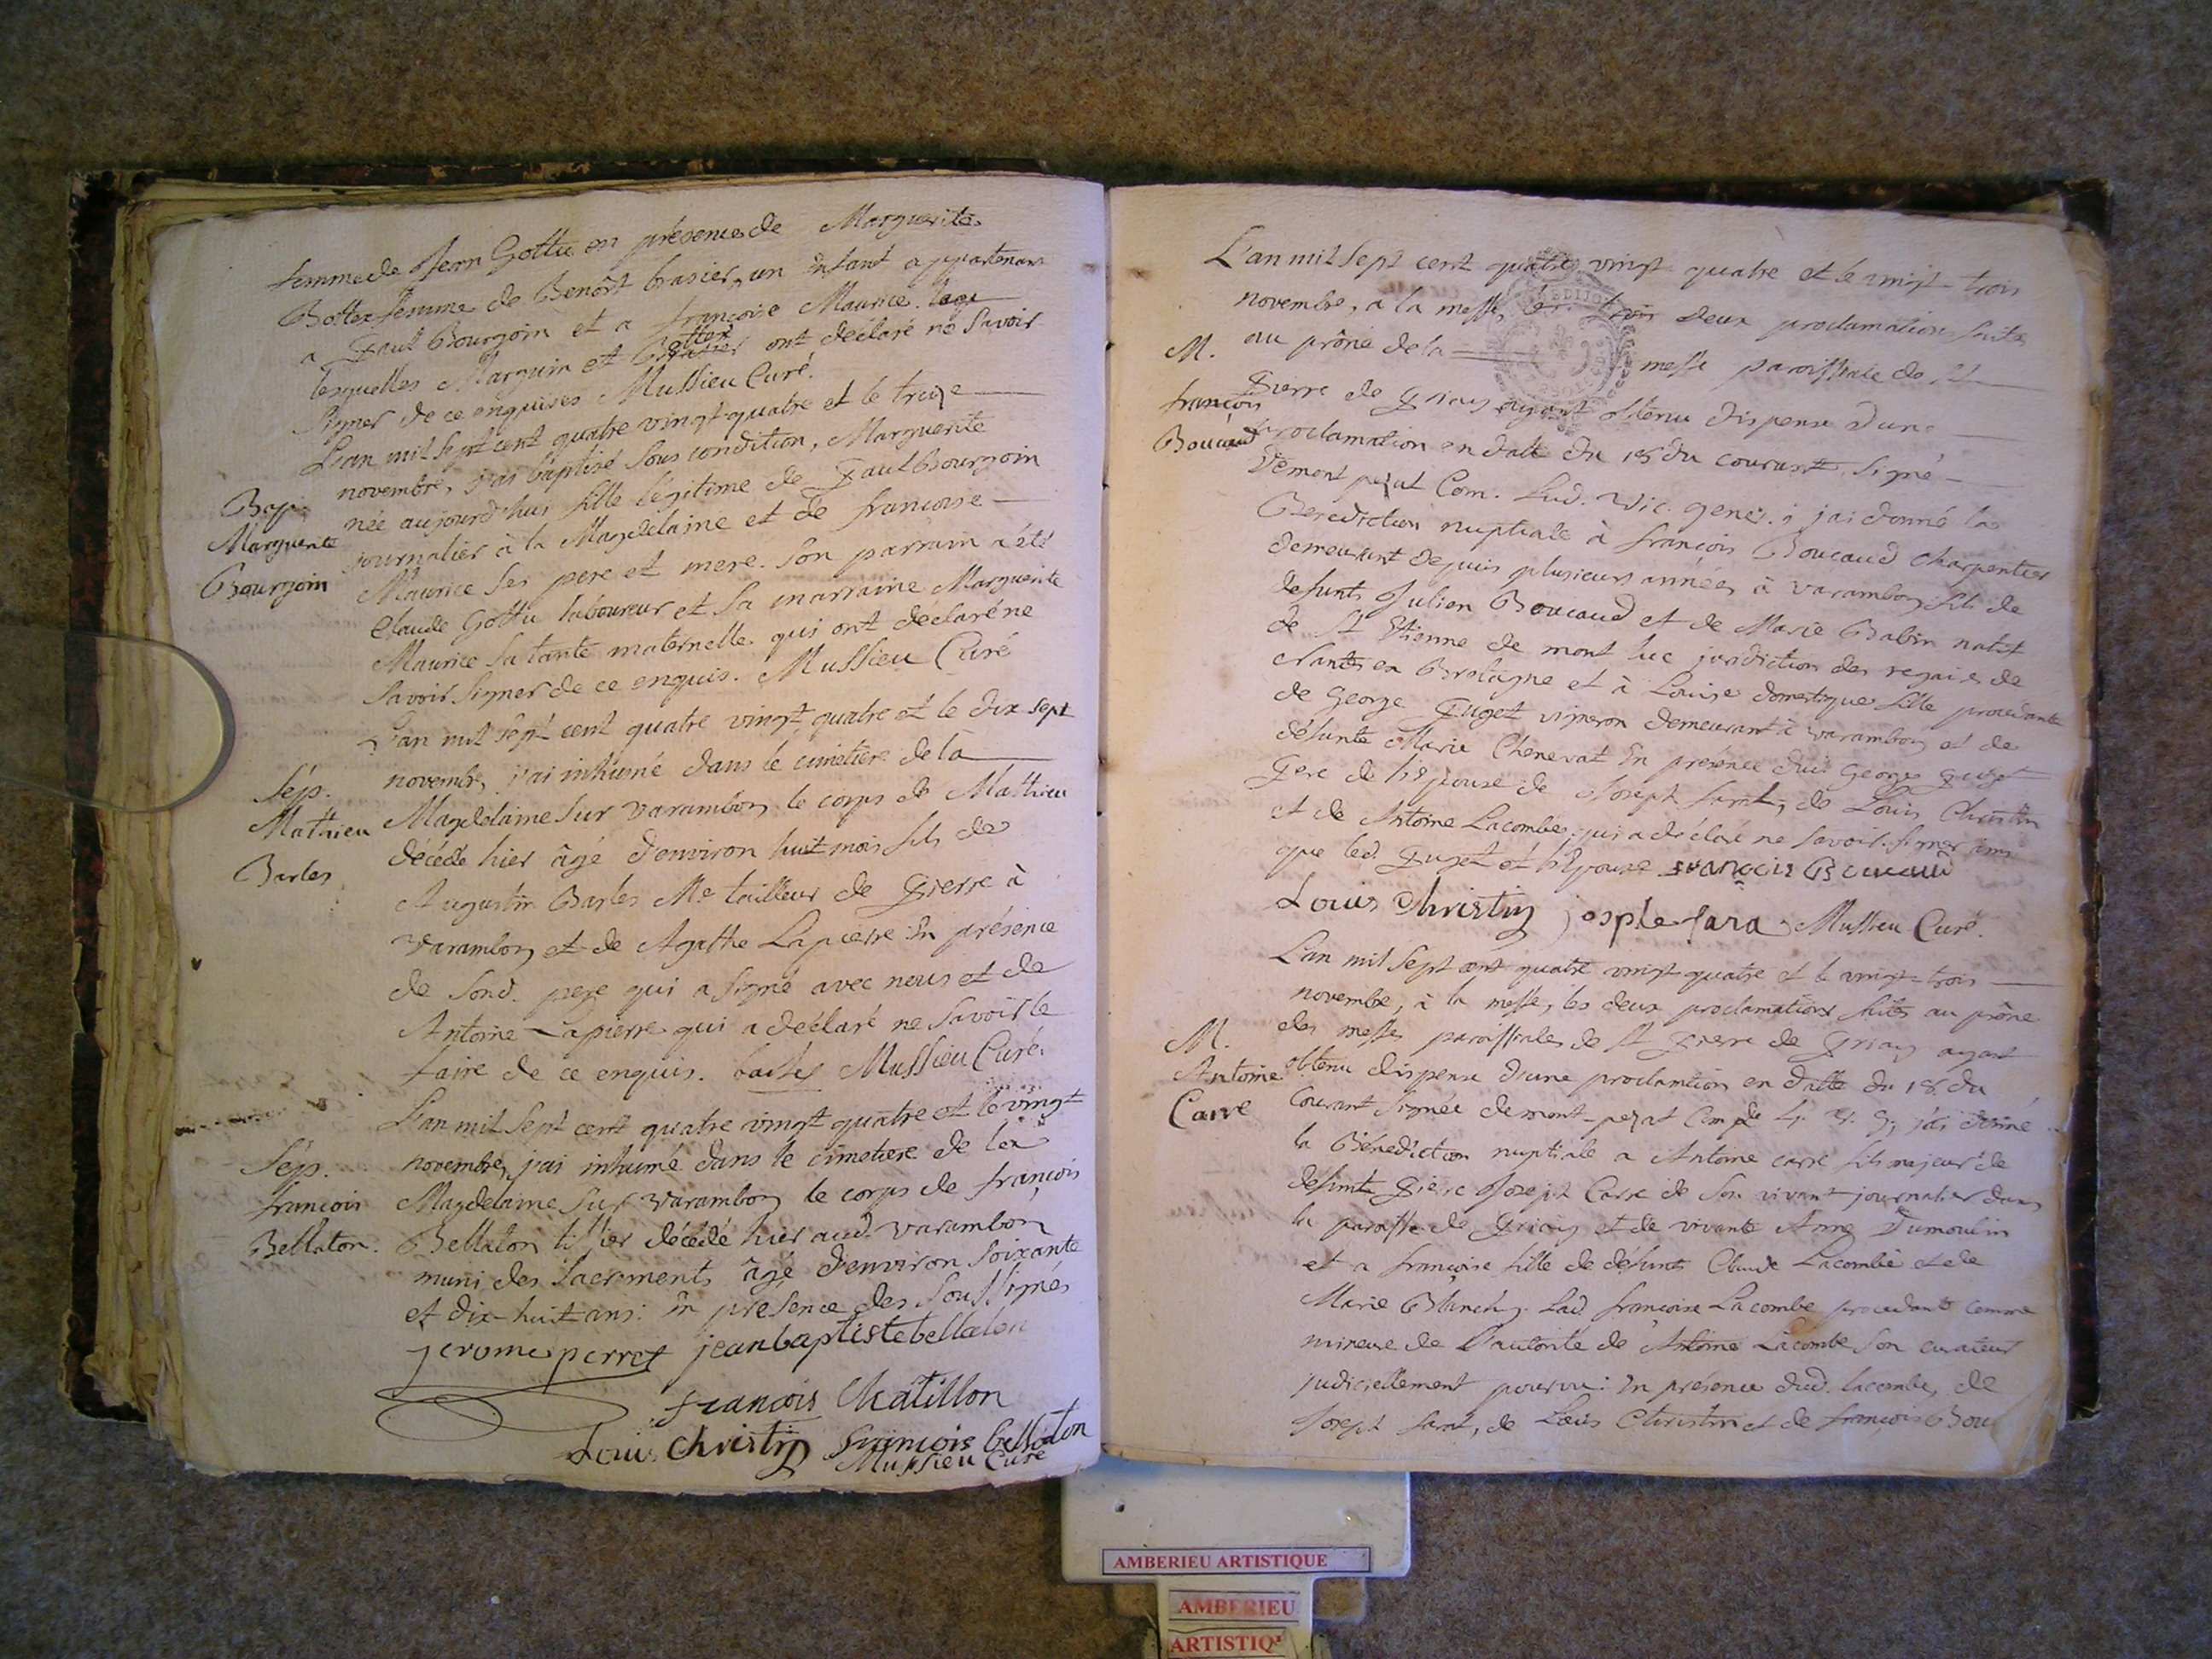 femme de Jean Gottu en présence de Marguerite
Bottex femme de Benoît brasier, un Enfant appartenant
a Paul Bourgoin et a françoise Maurice.
lesquelles Marguin et Bottex ont déclaré ne Savoir
Signer de ce enquises Mussieu Curé.
L'an mil sept cent quatre vingt-quatre et le treize
novembre, j'ai baptisé sous condition, Marguerite
née aujourd'hui fille légitime de Paul Bourgoin
journalier à la Magdelaine et de francoise
Maurice ses pere et mere. Son parrain a été
Claude Gottu laboureur et Sa marraine Marguerite
Maurice sa tante maternelle. qui ont déclaré ne
Savoir signer de ce enquis. Mussieu Curé
Bap.
Marguerite
Bourgoin
L'an mil sept cent quatre vingt quatre et le dix sept
novembre, j'ai inhumé dans le cimetiere de la
Magdelaine sur varambon, le corps de Mathieu
décédé hier âgé d'environ huit mois fils de
Augustin Barles Me tailleur de Pierre à
Varambon et de Agathe Lapierre En présence
de Sond. pere qui a signé avec nous et de
Antoine Lapierre qui a déclaré ne Savoir le
faire de ce enquis. barles Mussieu Curé.
Sép.
Mathieu
Barles
L'an mil Sept cent quatre vingt quatre et le vingt
novembre, j'ai inhumé dans le cimetiere de la
Magdelaine sur varambon le corps de françois
Bellaton tissier décédé hier aud. varambon
muni des Sacrements âgé d'environ Soixante
et dix-huit ans. En presence des Soussignés
Sép.
françois
Bellaton.
jerome perret jean baptiste bellaton
francois Chatillon
Louis Christin françois bellaton
Mussieu Curé
L'an mil Sept cent quatre vingt quatre et le vingt-trois
novembre, a la messe, les deux proclamations faites
au prône de la messe paroissiale de St
Pierre de Priay ayant obtenu dispense d'une
proclamation en date du 18 du courant, Signé
Demont pezat Com. Lud. Vic. gener. j'ai donné la
Benediction nuptiale à françois Boucaud charpentier
demeurant depuis plusieurs années à varambon, fils de
defunts Julien Boucaud et de Marie Babin natif
de St Etienne de mont luc juridiction des regaires de
Nantes en Bretagne et à Louise domestique fille procedante
de George Puget vigneron demeurant à varambon et de
défunte Marie Chenevat En présence dud. George Puget
Pere de l'Epouse de Joseph Farat, de Louis Christin
et de Antoine Lacombe, qui a déclaré ne Savoir signer ainsi
que led. Puget et l'Epouse françois Boucaud
Louis Christin josple fara Mussieu Curé.
M.
françois
Boucaud
L'an mil Sept cent quatre vingt-quatre et le vingt-trois
novembre, à la messe, les deux proclamations faites au prône
des messes paroissiales de St Pierre de Priay ayant
obtenu dispense d'une proclamation en date du 18 du
Courant Signée demont-pezat Com j'ai donné
la Bénediction nuptiale a Antoine carre fils majeur de
defunt Pierre Joseph Carre de Son vivant journalier dans
la paroisse de Priay et de vivante Anne Dumoulin
et a françoise fille de défunts Claude Lacombe et de
Marie Blanchy. Lad. françoise Lacombe procedante comme
mineure de l'autorité de Antoine Lacombe Son curateur
judiciellement pourvu. En présence dud. lacombe, de
Joseph Farat, de Louis Christin et de françois Bou
M.
Antoine
Carre
AMBERIEU ARTISTIQUE
AMBERIEU
ARTISTIQ